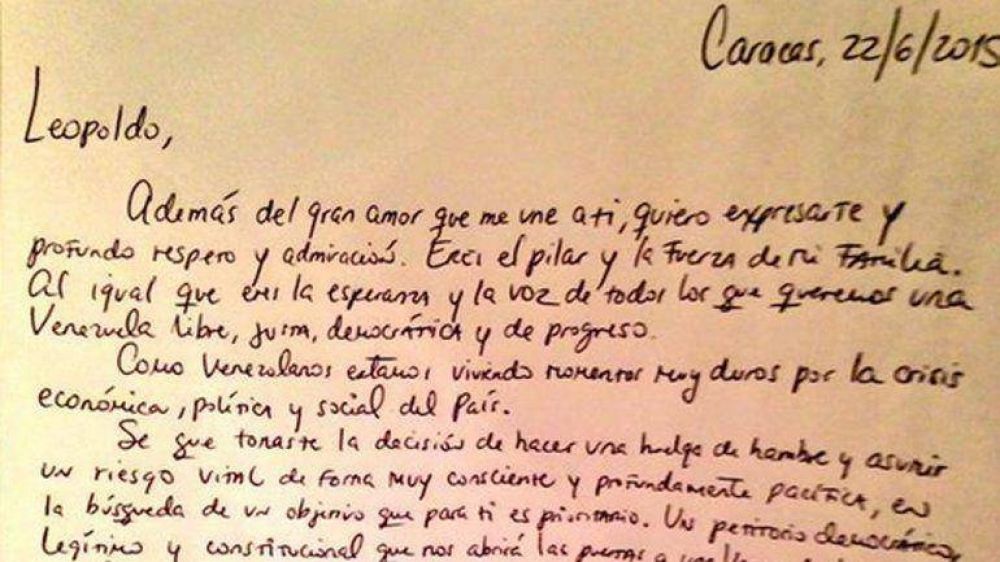 Caracas, 22/6/2015
Leopoldo,
Además del gran amor que me une a ti, quiero expresarte y
profundo respero y admiración. Eres el pilar y la fuerza de mi familia.
Al igual que eres la esperanza y la voz de todos los que queremos una
Venezuela libre, justa, democrática y de progreso.
Como Venezolanos estamos viviendo momentos muy duros por la crisis
económica, política y social del País.
Se que tomaste la decisión de hacer una huelga de hambre y asumir
un riesgo vital de forma muy consciente y profundamente pacífica, en
la búsqueda de un objetivo que para ti es prioritario. Un petitorio democrático,
legítimo y constitucional que nos abrirá las puertas a una